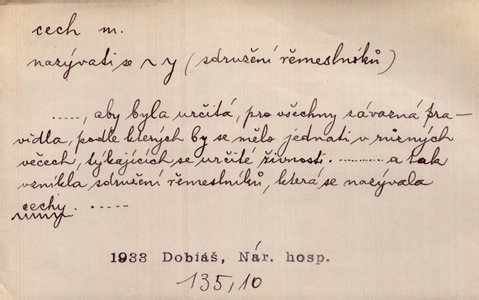 cech m.
nazývati se ~ y (sdružení řemeslníků)
....., aby byla určitá, pro všechny závazná pra-
vidla, podle kterých by se mělo jednati v různých
věcech, týkajících se určité živnosti. .......... a tak
vznikla sdružení řemeslníků, která se nazývala
cechy. ......
1933 Dobiáš, Nár. hosp.
135,10